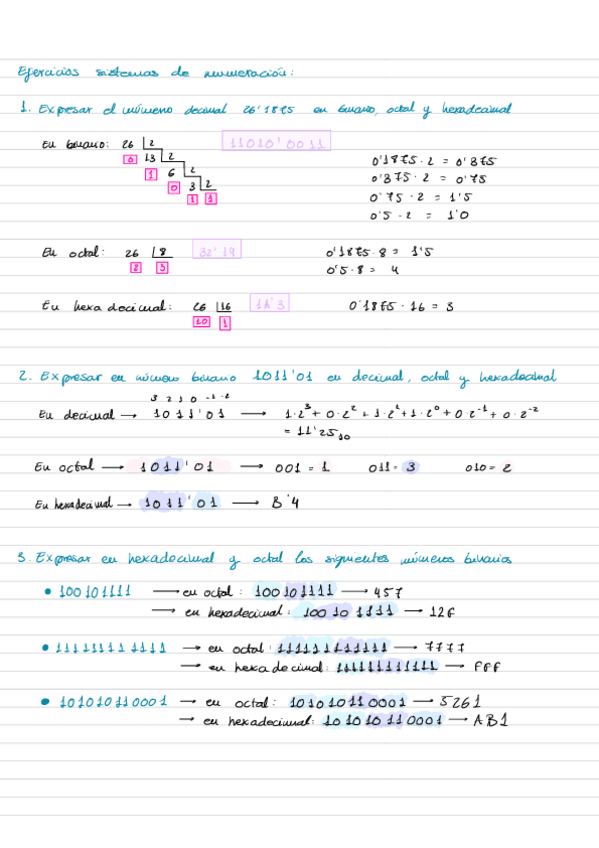 Ejercicios sistemas de numeración:
1. Expresar el número decimal 26'1875 en binario, octal y hexadecimal
En binario: 26 2 11010'0011
0 13 2 0'1875 · 2 = 0'375
1 6 2 0'375 · 2 = 0'75
0 3 2 0'75 · 2 = 1'5
1 1 0'5 · 2 = 1'0
En octal: 26 8 32'14 0'1875 · 8 = 1'5
2 3 0'5 · 8 = 4
En hexadecimal: 26 16 1A'3 0'1875 · 16 = 3
10 1
2. Expresar en número binario 1011'01 en decimal, octal y hexadecimal
3 2 1 0 -1 -2
En decimal → 1011'01 → 1·2³ + 0·2² + 1·2¹ + 1·2⁰ + 0·2⁻¹ + 0·2⁻²
= 11'25₁₀
En octal → 1011'01 → 001 = 1 011 = 3 010 = 2
En hexadecimal → 1011'01 → B'4
3. Expresar en hexadecimal y octal los siguientes números binarios
• 100101111 → en octal: 100101111 → 457
→ en hexadecimal: 100101111 → 12F
• 111111111111 → en octal: 111111111111 → 7777
→ en hexadecimal: 111111111111 → FFF
• 101010110001 → en octal: 101010110001 → 5261
→ en hexadecimal: 101010110001 → AB1